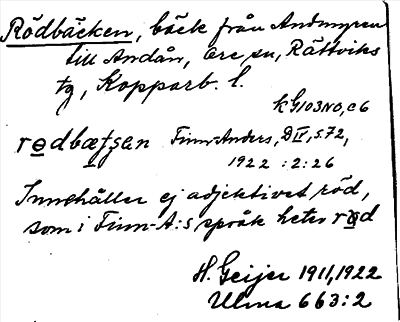 Rödbäcken, bäck från Andmyren
till Andån, Ore sn, Rättviks
tg, Kopparb. l.
kG103NO, c6
rødbæʈʂan Finn-Anders, D IV, s72,
1922 : 2 : 26
Innehåller ej adjektivet röd,
som i Finn-A:s språk heter rød
H. Geijer 1911, 1922
Ulma 663:2